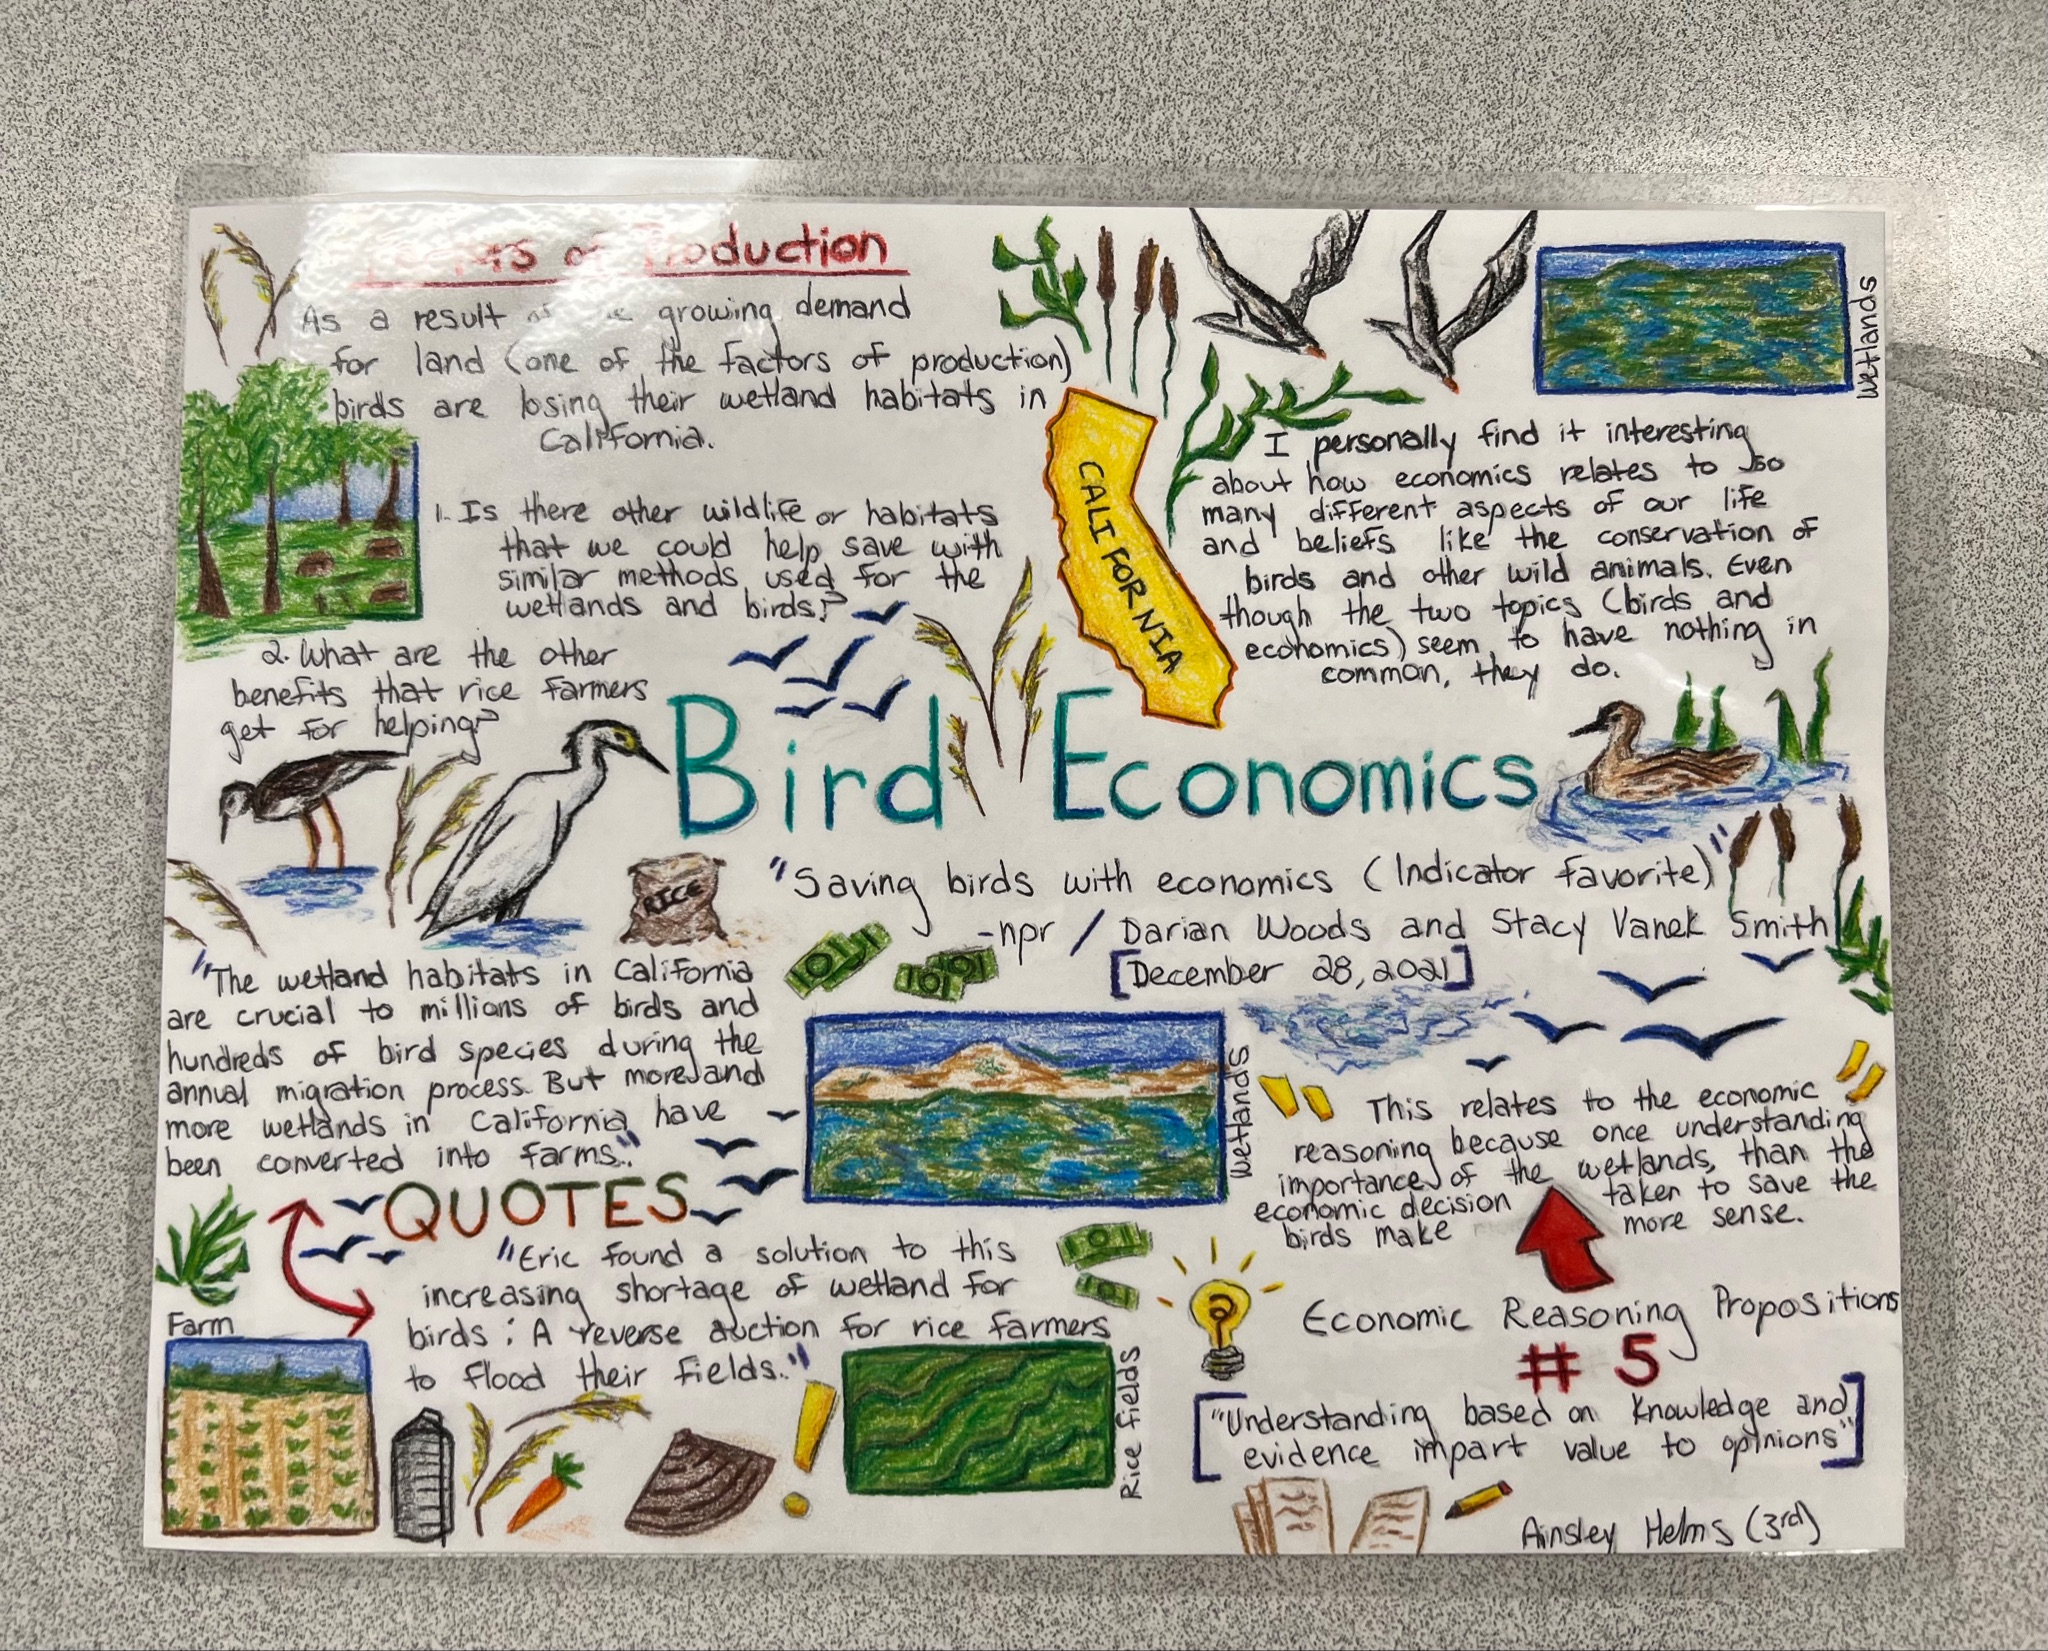 Factors of Production
As a result of the growing demand
for land (one of the factors of production)
birds are losing their wetland habitats in
California.
1. Is there other wildlife or habitats
that we could help save with
similar methods used for the
wetlands and birds?
2. What are the other
benefits that rice farmers
get for helping?
CALIFORNIA
wetlands
I personally find it interesting
about how economics relates to so
many different aspects of our life
and beliefs like the conservation of
birds and other wild animals. Even
though the two topics (birds and
economics) seem to have nothing in
common, they do.
Bird Economics
"Saving birds with economics (Indicator favorite)"
-npr / Darian Woods and Stacy Vanek Smith
[December 28, 2021]
RICE
"The wetland habitats in California
are crucial to millions of birds and
hundreds of bird species during the
annual migration process. But more and
more wetlands in California have
been converted into farms."
QUOTES
"Eric found a solution to this
increasing shortage of wetland for
birds: A reverse auction for rice farmers
to flood their fields."
Farm
wetlands
Rice fields
This relates to the economic
reasoning because once understanding
importance of the wetlands, than the
economic decision taken to save the
birds make more sense.
Economic Reasoning Propositions
# 5
["Understanding based on knowledge and
evidence impart value to opinions"]
Ainsley Helms (3rd)